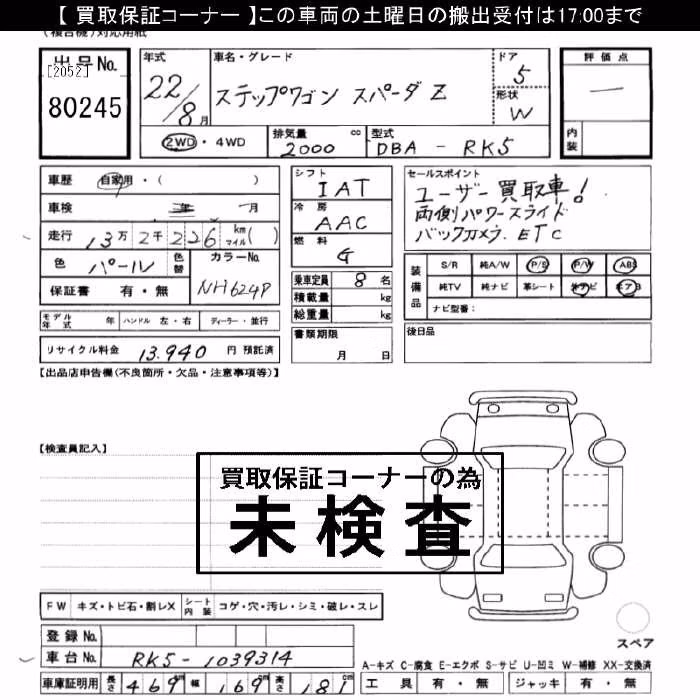 【 買取保証コーナー 】この車両の土曜日の搬出受付は17:00まで
(複合機)対応用紙
出品No.
[2052]
80245
年式
22/8月
車名・グレード
ステップワゴン スパーダ Z
ドア
5
形状
W
評価点
—
内装
2WD・4WD
排気量 2000 cc
型式 DBA - RK5
車歴 自家用・( )
車検 年 月
走行 13万2千226 km マイル( )
色 パール
色替
カラーNo.
NH624P
保証書 有・無
シフト
IAT
冷房
AAC
燃料
G
乗車定員 8 名
積載量 kg
総重量 kg
書類期限
月 日
セールスポイント
ユーザー買取車!
両側パワースライド
バックカメラ. ETC
装備品
S/R 純A/W P/S P/W ABS
純TV 純ナビ 革シート 社ナビ エアB
ナビ型番:
後日品
モデル年式 年 ハンドル 左・右 ディーラー・並行
リサイクル料金 13.940 円 預託済
【出品店申告欄(不良箇所・欠品・注意事項等)】
【検査員記入】
買取保証コーナーの為
未検査
FW キズ・トビ石・割レX シート内装 コゲ・穴・汚レ・シミ・破レ・スレ
登録No.
車台No. RK5-1039314
車庫証明用 長さ 469 幅 169 高さ 181
スペア
A-キズ C-腐食 E-エクボ S-サビ U-凹ミ W-補修 XX-交換済
工具 有・無 ジャッキ 有・無